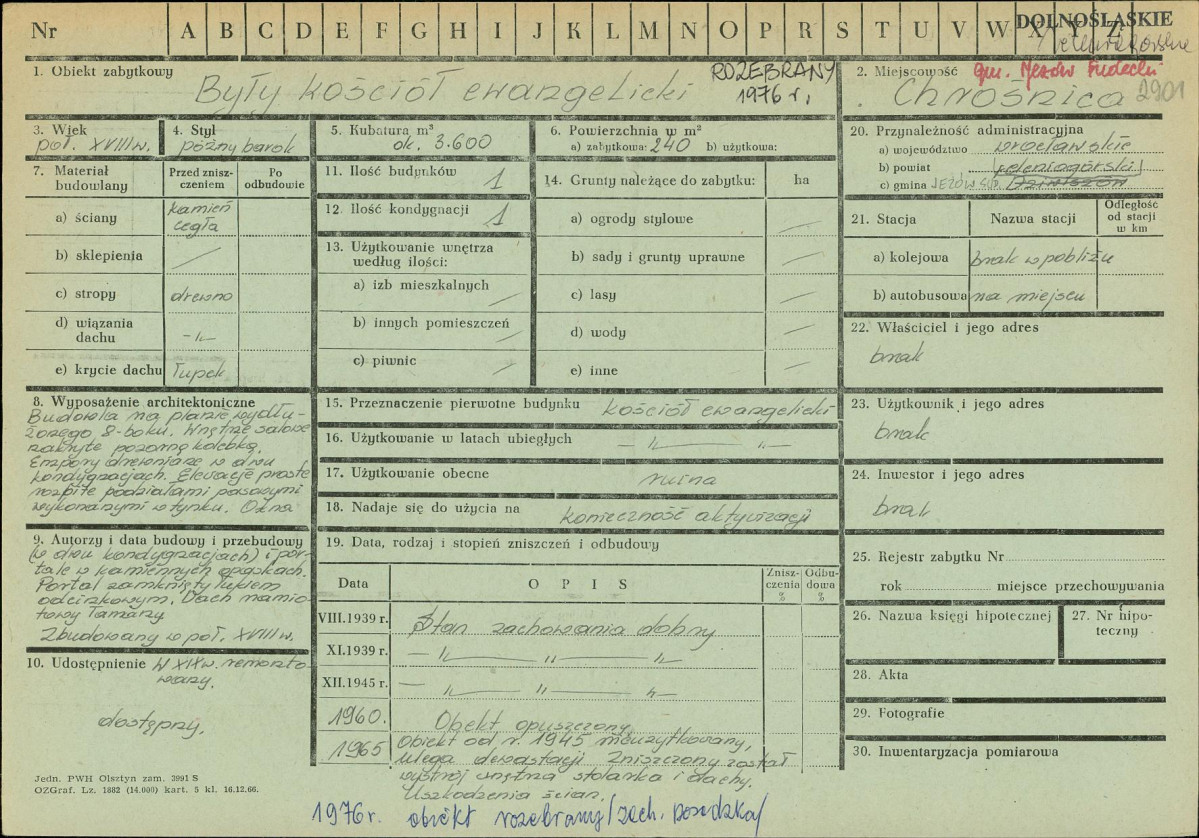 Nr A B C D E F G H I J K L M N O P R S T U V W X Y Z
DOLNOŚLĄSKIE
1. Obiekt zabytkowy
Były kościół ewangelicki
ROZEBRANY
1976 r.
2. Miejscowość gm. Jeżów Sudecki
Chrośnica 2901
3. Wiek
poł. XVIII w.
4. Styl
późny barok
5. Kubatura m³
ok. 3.600
6. Powierzchnia w m²
a) zabytkowa: 240 b) użytkowa:
7. Materiał budowlany
Przed zniszczeniem
Po odbudowie
a) ściany kamień cegła
b) sklepienia —
c) stropy drewno
d) wiązania dachu -"-
e) krycie dachu łupek
11. Ilość budynków 1
12. Ilość kondygnacji 1
13. Użytkowanie wnętrza
według ilości:
a) izb mieszkalnych —
b) innych pomieszczeń —
c) piwnic —
14. Grunty należące do zabytku: ha
a) ogrody stylowe —
b) sady i grunty uprawne —
c) lasy —
d) wody —
e) inne —
20. Przynależność administracyjna
a) województwo wrocławskie
b) powiat jeleniogórski
c) gmina JEŻÓW SUD. DZIWISZÓW
21. Stacja Nazwa stacji Odległość od stacji w km
a) kolejowa brak w pobliżu
b) autobusowa na miejscu
22. Właściciel i jego adres
brak
8. Wyposażenie architektoniczne
Budowla na planie wydłu-
żonego 8-boku. Wnętrze salowe
zakryte pozorną kolebką.
Empory drewniane w dwu
kondygnacjach. Elewacje proste
rozbite podziałami pasowymi
wykonanymi w tynku. Okna
9. Autorzy i data budowy i przebudowy
(w dwu kondygnacjach) i por-
tale w kamiennych opaskach.
Portal zamknięty łukiem
odcinkowym. Dach namio-
towy łamany
Zbudowany w poł. XVIII w.
10. Udostępnienie W XIX w. remonto-
wany.
dostępny.
15. Przeznaczenie pierwotne budynku kościół ewangelicki
16. Użytkowanie w latach ubiegłych — " — " —
17. Użytkowanie obecne ruina
18. Nadaje się do użycia na konieczność aktywizacji
19. Data, rodzaj i stopień zniszczeń i odbudowy
Data OPIS Zniszczenia % Odbudowa %
VIII.1939 r. Stan zachowania dobry
XI.1939 r. — " — " — " —
XII.1945 r. — " — " — " —
1960. Obiekt opuszczony
1965 Obiekt od r. 1945 nieużytkowany,
ulega dewastacji Zniszczony został
wystrój wnętrza stolarka i dachy.
Uszkodzenia ścian.
1976 r. obiekt rozebrany /zach. posadzka/
23. Użytkownik i jego adres
brak
24. Inwestor i jego adres
brak
25. Rejestr zabytku Nr
rok miejsce przechowywania
26. Nazwa księgi hipotecznej
27. Nr hipoteczny
28. Akta
29. Fotografie
30. Inwentaryzacja pomiarowa
Jedn. PWH Olsztyn zam. 3991 S
OZGraf. Lz. 1882 (14.000) kart. 5 kl. 16.12.66.